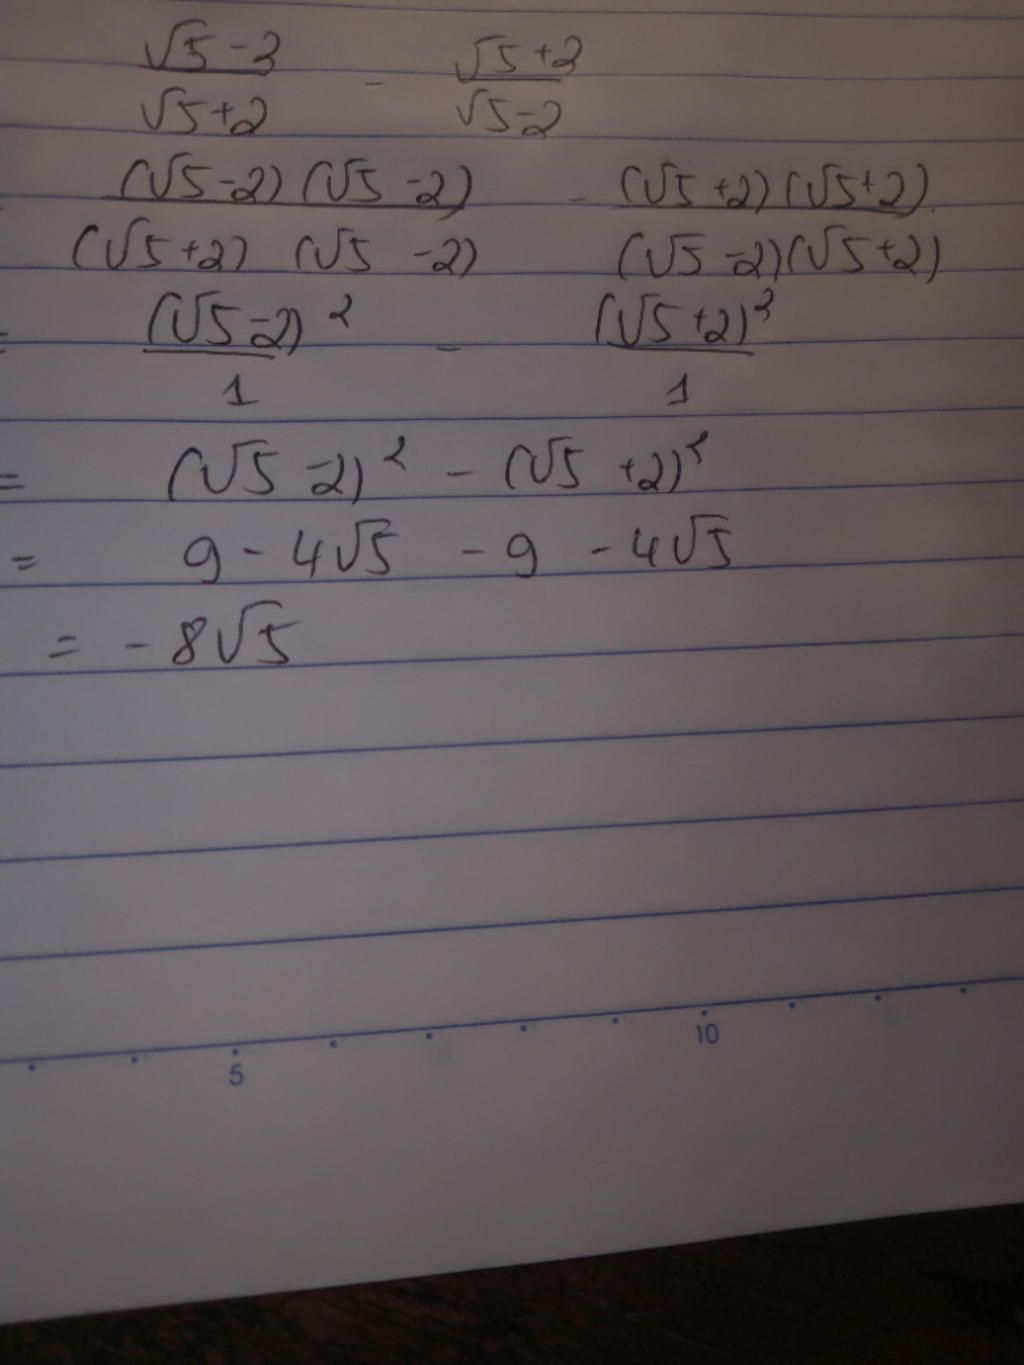 √5-2 / √5+2 - √5+2 / √5-2
(√5-2)(√5-2) / (√5+2)(√5-2) - (√5+2)(√5+2) / (√5-2)(√5+2)
= (√5-2)² / 1 - (√5+2)² / 1
= (√5-2)² - (√5+2)²
= 9 - 4√5 - 9 - 4√5
= -8√5
5 10